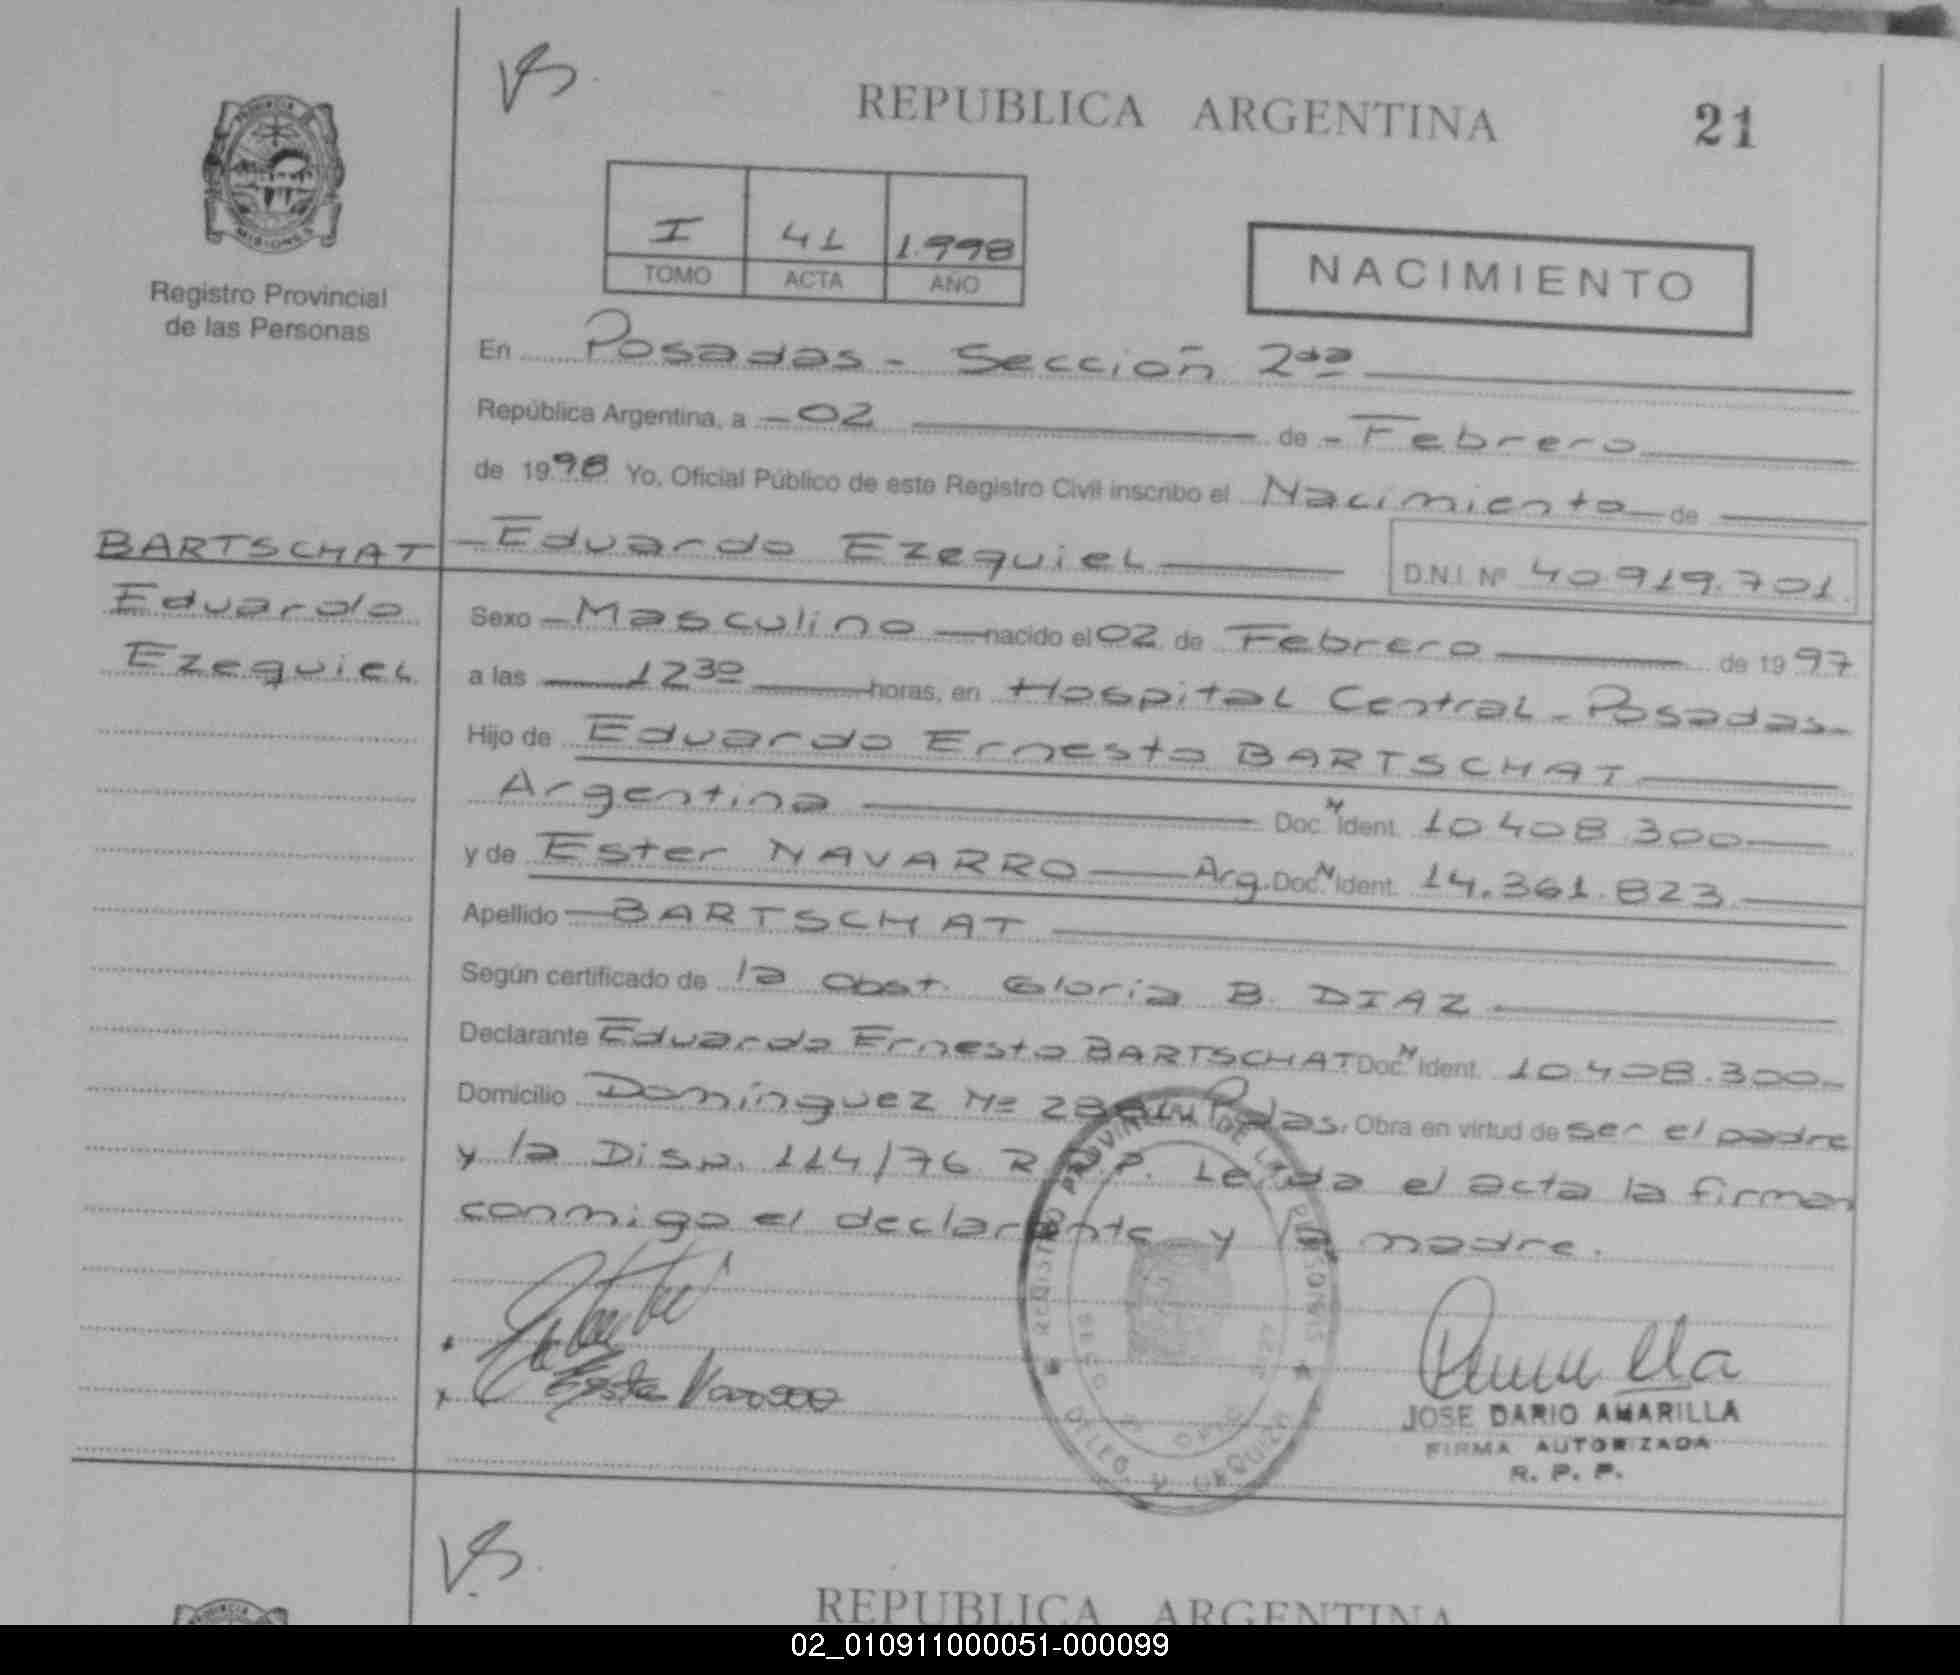 REPUBLICA ARGENTINA
21
PROVINCIA
MISIONES
Registro Provincial
de las Personas
I 41 1.998
TOMO ACTA AÑO
NACIMIENTO
En Posadas - Sección 2da
República Argentina, a - 02 de - Febrero
de 1998 Yo, Oficial Público de este Registro Civil inscribo el Nacimiento de
BARTSCHAT
Eduardo
Ezequiel
- Eduardo Ezequiel D.N.I. Nº 40.919.701.
Sexo - Masculino nacido el 02 de Febrero de 1997
a las 12 30 horas, en Hospital Central - Posadas -
Hijo de Eduardo Ernesto BARTSCHAT
Argentina Doc. N Ident. 10.408.300
y de Ester NAVARRO Arg. Doc. N Ident. 14.361.823
Apellido BARTSCHAT
Según certificado de la Obst. Gloria B. DIAZ
Declarante Eduardo Ernesto BARTSCHAT Doc. N Ident. 10.408.300
Domicilio Domínguez Nº Pdas. Obra en virtud de ser el padre
y la Disp. 114/76 R.P.P. Leída el acta la firman
conmigo el declarante y la madre.
REGISTRO PROVINCIAL DE LAS PERSONAS
DELEG. V. URQUIZA
Ester Navarro
JOSE DARIO AMARILLA
FIRMA AUTORIZADA
R. P. P.
REPUBLICA ARGENTINA
PROVINCIA
02_010911000051-000099